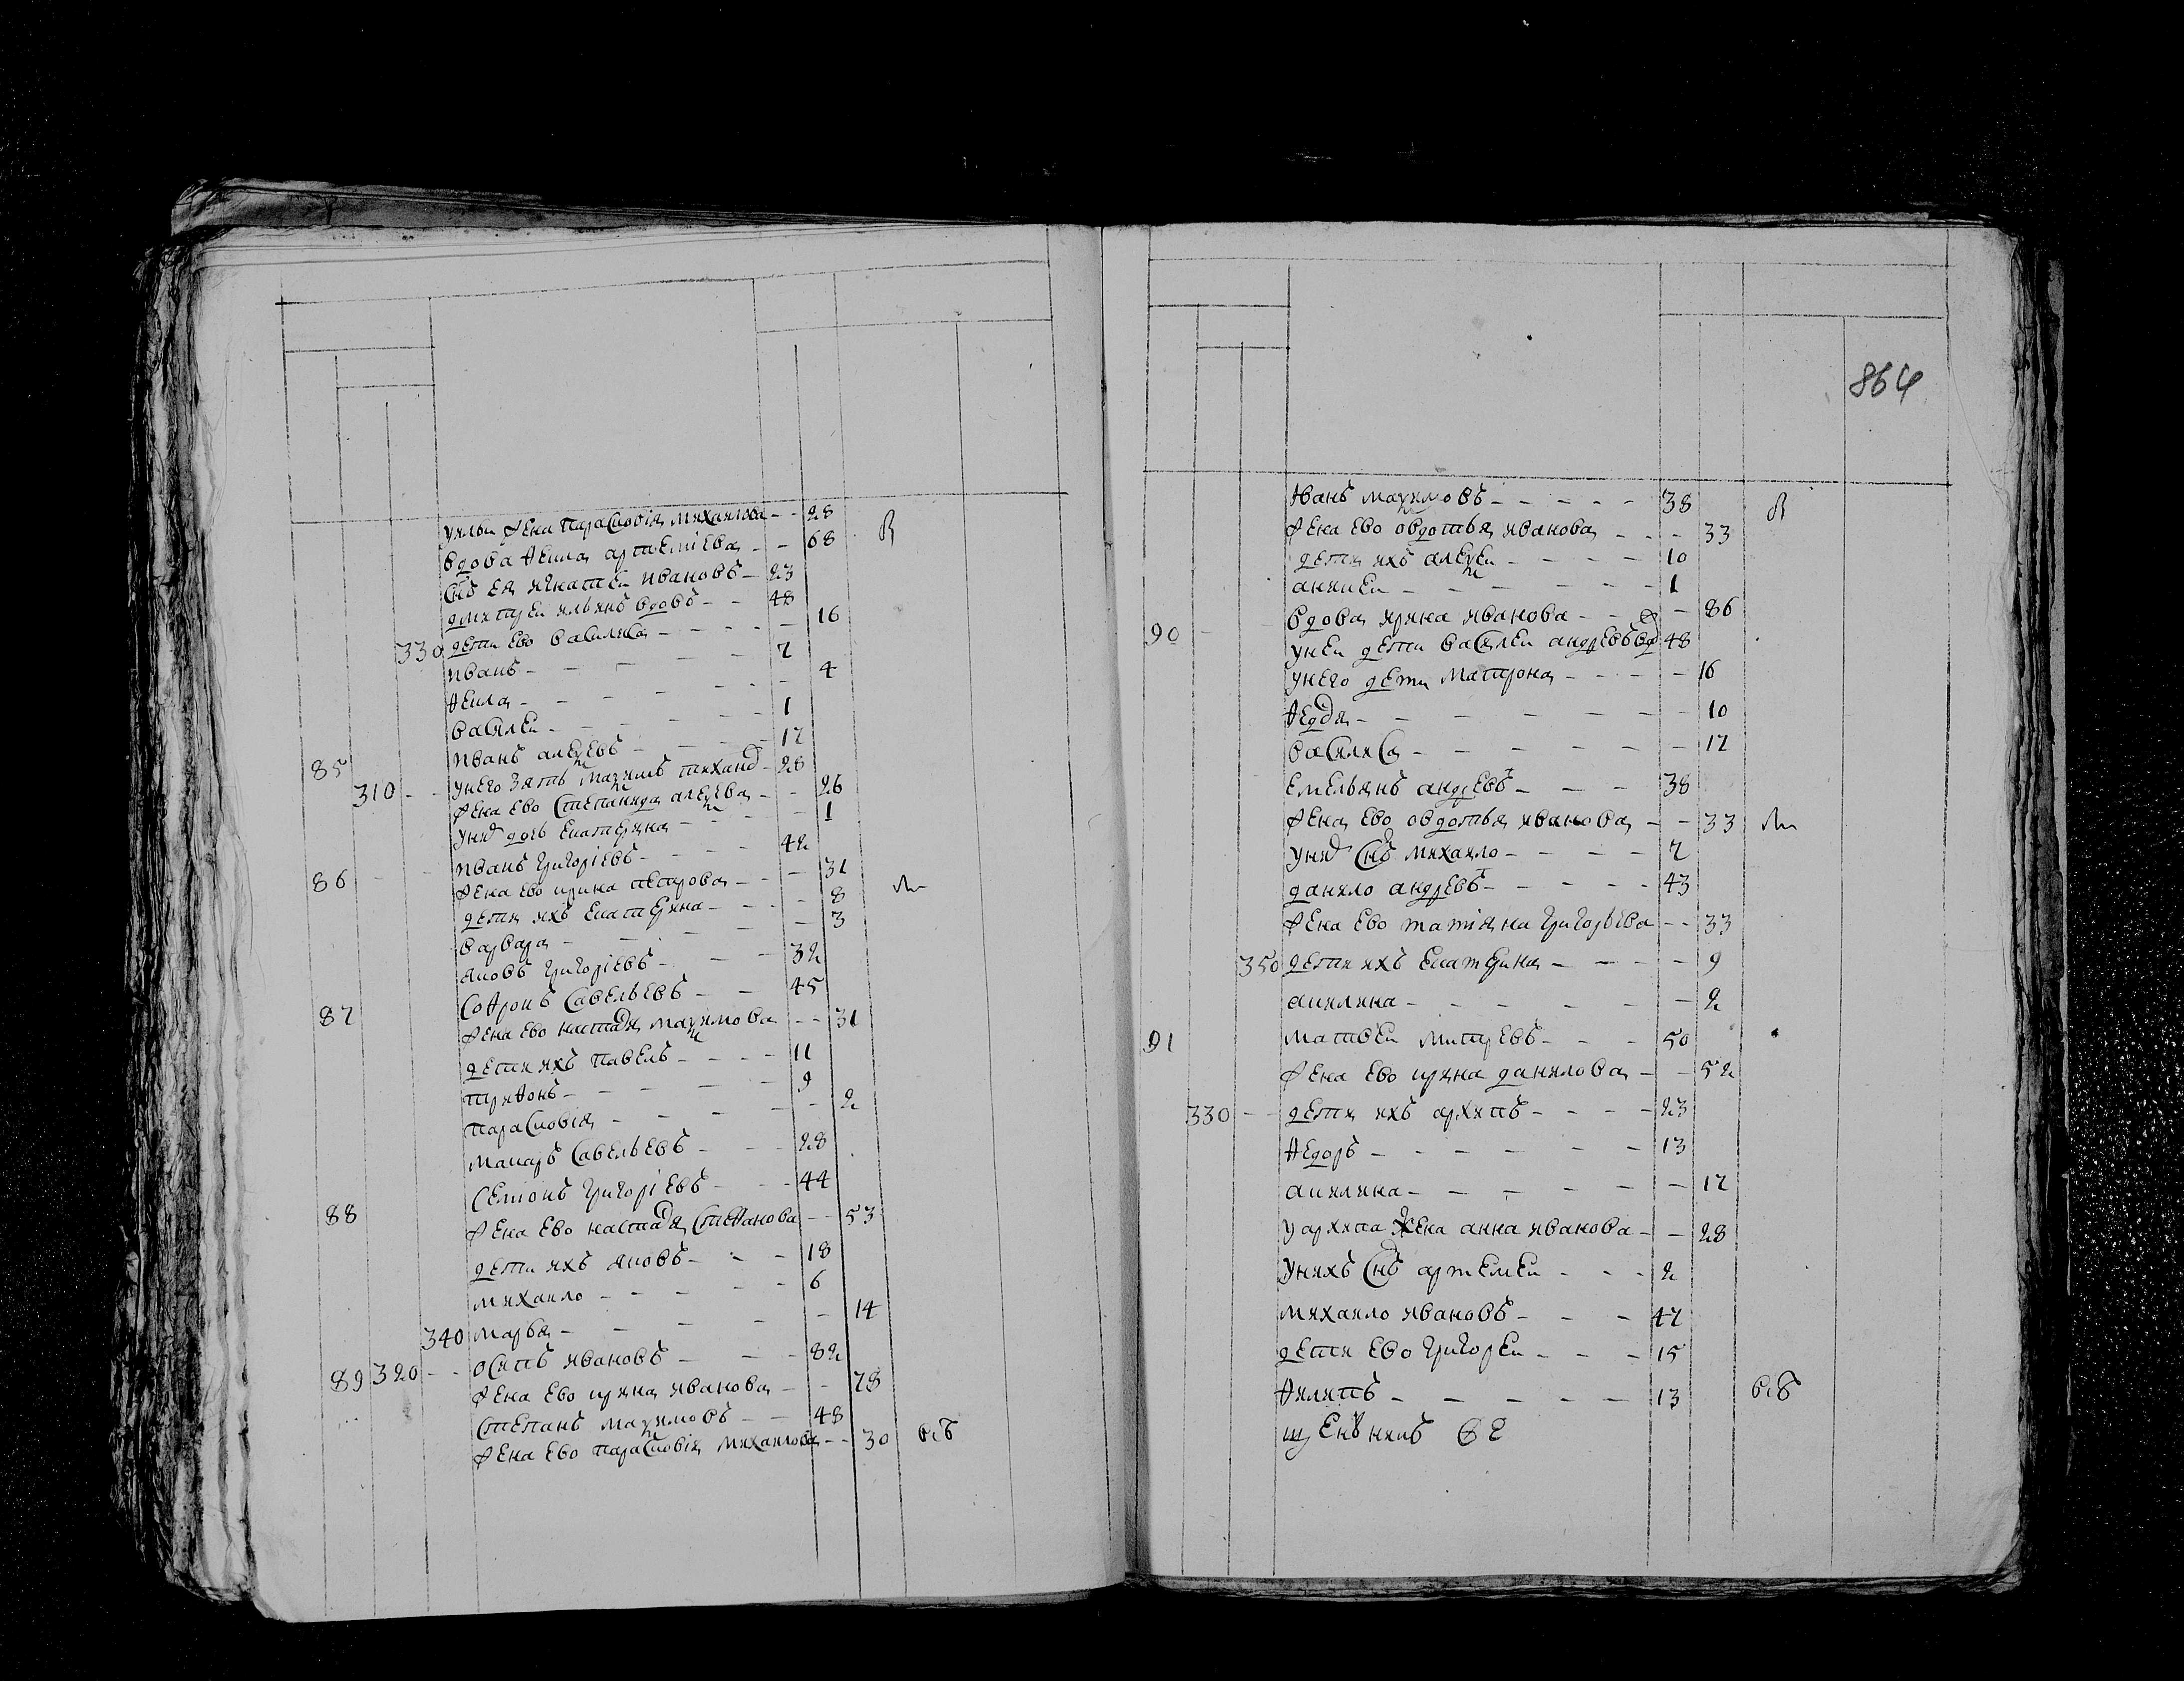 ульи жена парасковiя михаилова - - 28
вдова фекла артемiева - - 68 в
снъ ея игнатеи ивановъ - 23
дмитреи ильинъ вдовъ - - 48
330 дети ево василиса - - - - - 16
иванъ - - - - - 7
фекла - - - - - - 4
василеи - - - - - 1
85 иванъ алеѯеевъ - - - - 17
310 - - унего зять маѯимъ тихано - 28
жена ево степанида алеѯева - - - 26
уних дочь екатерина - - - - 1
86 - - иванъ григорiевъ - - - - 42
жена ево ирина петрова - - - 31
дети ихъ екатерина - - - - 8
варвара - - - - - 3
яковъ григорiевъ - - - 32
87 софронъ савельевъ - - 45
жена ево настася маѯимова - - 31
дети ихъ павелъ - - - - 11
трифонъ - - - - - 9
парасковiя - - - - - - 2
макаръ савельевъ - - - - 28
88 семионъ григорiевъ - - - 44
жена ево настася стефанова - - 53
дети ихъ яковъ - - - 18
михаило - - - - - 6
340 марья - - - - - - 14
89 320 - - осипъ ивановъ - - - 82
жена ево ирина иванова - - 78
степанъ маѯимовъ - - 48
жена ево парасковiя михаилова - - 30
864
иванъ маѯимовъ - - - - - 38 в
жена ево овдотья иванова - - - 33
дети ихъ алеѯеи - - - - 10
аникеи - - - - - - 1
вдова ирина иванова - - - 86
90 - унеи дети василеи андреевъ вд 48
унего дети матрона - - - - 16
федося - - - - - - - 10
василиса - - - - - - - 17
емельянъ андреевъ - - - 38
жена ево овдотья иванова - - 33
уних снъ михаило - - - - 7
данило андреевъ - - - - - 43
жена ево татiяна григорьева - - 33
350 дети ихъ екатерина - - - - 9
акилина - - - - - - 2
91 матвеи митреевъ - - - 50
жена ево ирина данилова - - 52
330 - - дети ихъ архипъ - - - - 23
федоръ - - - - - - 13
акилина - - - - - - 17
уархипа жена анна иванова - - 28
унихъ снъ артемеи - - - 2
михаило ивановъ - - - 47
дети ево григореи - - - 15
филипъ - - - - - - 13